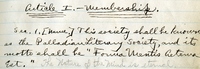 Article I. – Membership.
Sec. 1. [Name] This society shall be known
as the Palladian Literary Society, and its
motto shall be "Forma Mentis Aeterna
Est."